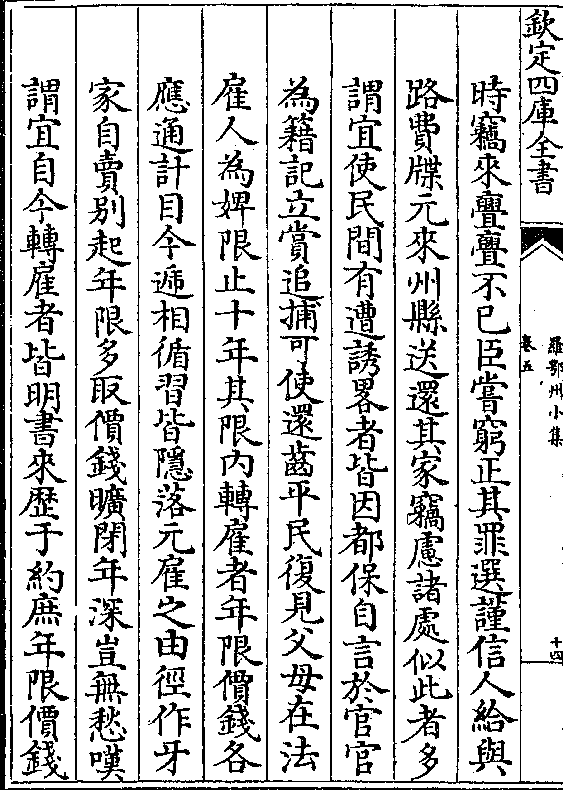 欽定四庫全書
羅鄂州小集
卷五
十四
時竊來亹亹不已臣嘗窮正其罪選謹信人給與
路費牒元來州縣送還其家竊慮諸處似此者多
謂宜使民間有遭誘畧者皆因都保自言於官官
為籍記立賞追捕可使還齒平民復見父母在法
雇人為婢限止十年其限内轉雇者年限價錢各
應通計目今遞相循習皆隱落元雇之由徑作牙
家自賣别起年限多取價錢曠閉年深豈無愁嘆
謂宜自今轉雇者皆明書來歴于約庶年限價錢